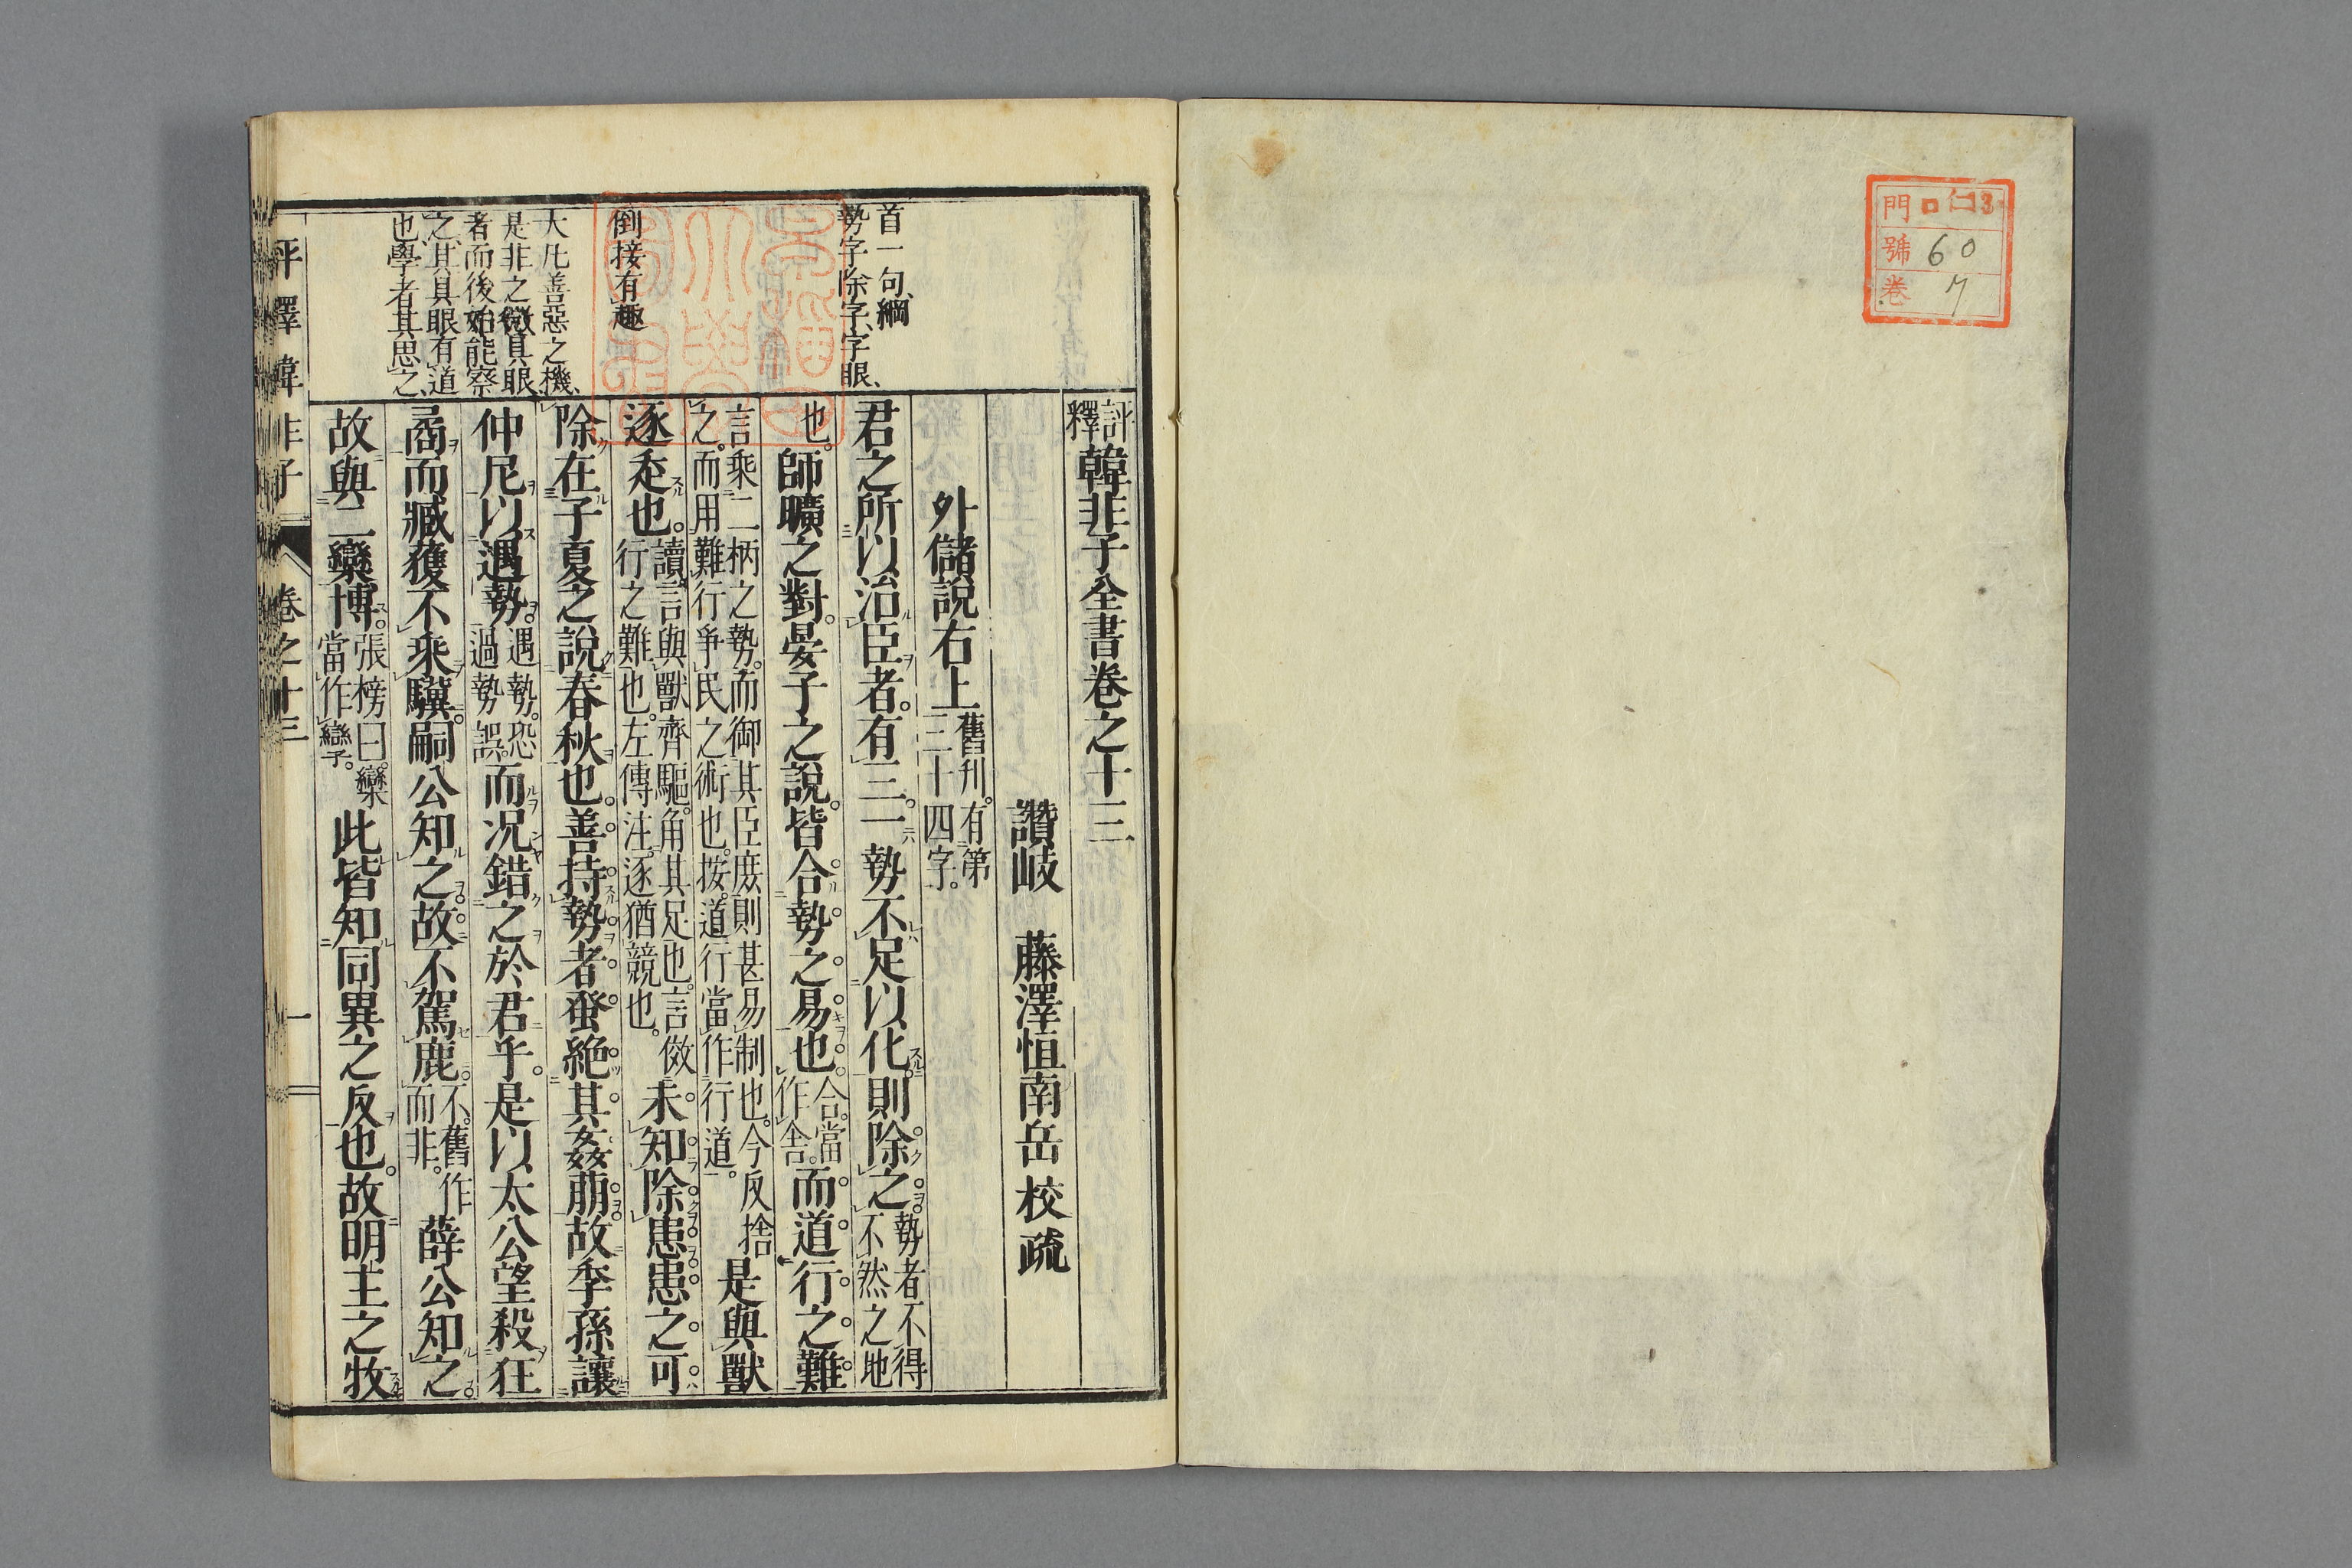 門 仁 3
號 60
卷 7
評釋韓非子全書卷之十三
讚岐 藤澤恒南岳校疏
外儲說右上 舊刋。有第三十四字。
君之所以治臣者。有三。一勢不足以化。則除之。勢者不得不然之地
也。師曠之對。晏子之說。皆合勢之易也。合。當作舍。而道行之難。
言乘二柄之勢。而御其臣庶則甚易制也。今反捨之。而用難行爭民之術也。按。道行當作行道。是與獸
逐走也。讀言與獸齊驅。角其足也。言傚行之難也。左傳注。逐猶競也。未知除患。患之可
除。在子夏之說春秋也。善持勢者。蚤絕其姦萠。故季孫讓
仲尼以遇勢。遇勢。恐過勢誤。而况錯之於君乎。是以太公望殺狂
矞。而臧獲不乘驥。嗣公知之。故不駕鹿。不。舊作而非。薛公知之。
故與二欒博。張榜曰。欒當作孿。此皆知同異之反也。故明主之牧
首一句、綱
勢字除字、字眼、
倒接有趣
大凡善惡之機、
是非之微、具眼
者而後始能察
之、其具眼有道
也、學者其思之、
評釋韓非子 卷之十三 一